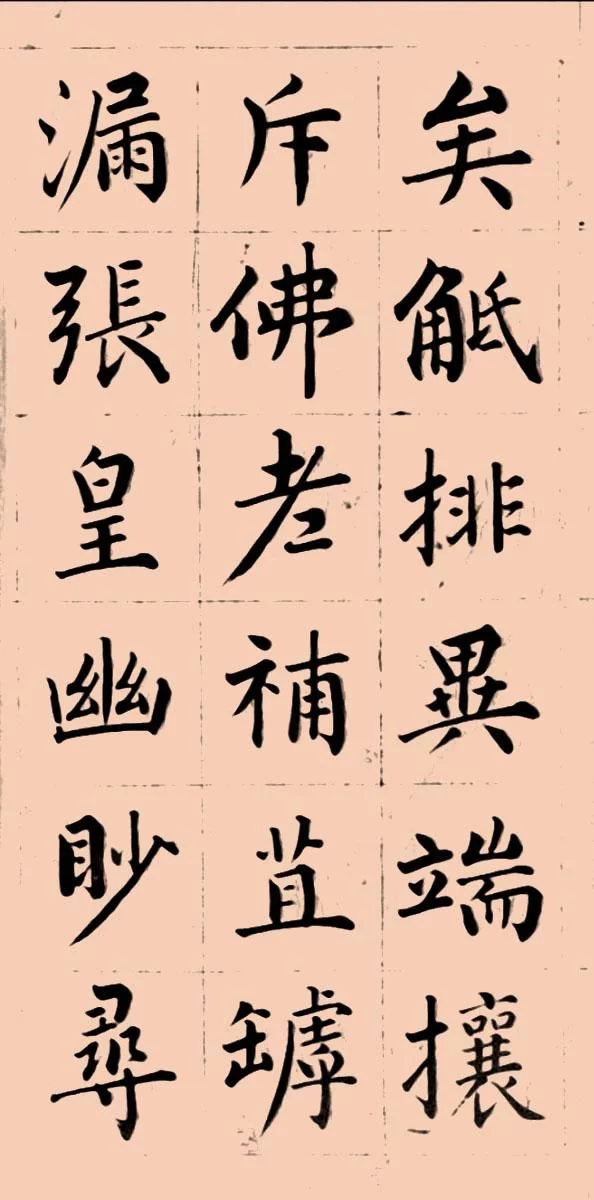 矣觝排異端攘
斥佛老補苴罅
漏張皇幽眇尋